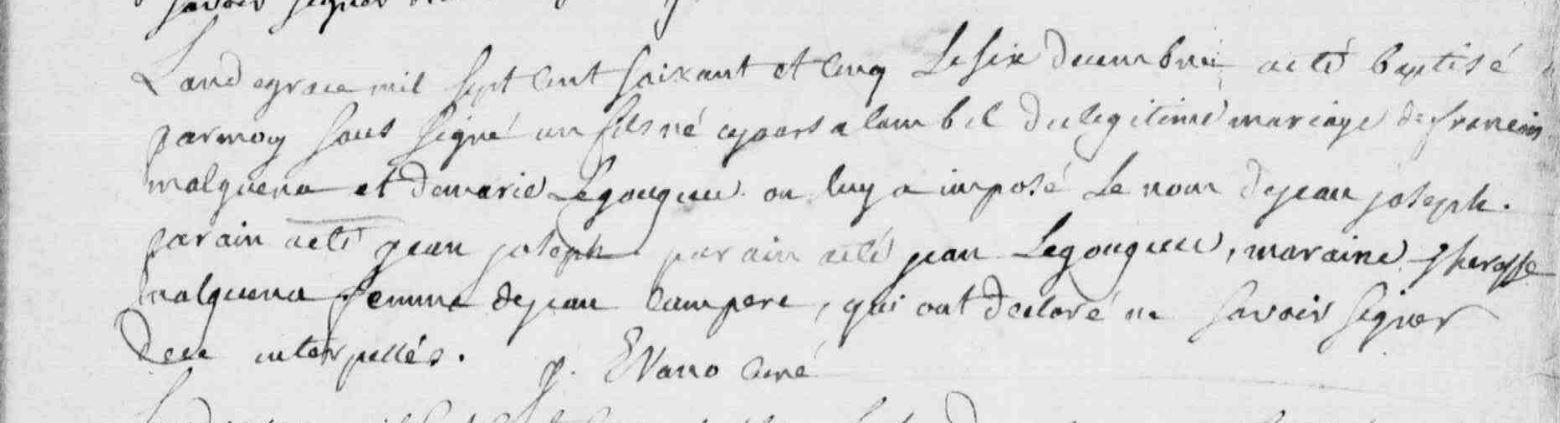 savoir signer
Landegrace mil sept cent soixant et cinq Le six decembre acté baptisé
parmoy sous signé un fils né cejours a lambel du legitime mariage de francois
malguena et demarie Legougueu on luy a imposé Le nom dejean joseph.
parain acté jean joseph parain acté jean Legougueu, maraine theresse
malguena femme dejean campere, qui ont declaré ne savoir signer
dece interpellés. p. Evano curé